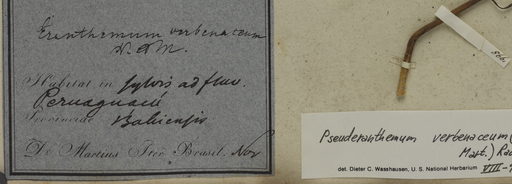 Eranthemum verbenaceum
N. & M.
Habitat in sylvis ad fluv.
Peruaguacú
Provinciae Bahiensis
Dr. Martius Iter Brasil. Nov
866
Pseuderanthemum verbenaceum (
Mart.) Rad
det. Dieter C. Wasshausen, U. S. National Herbarium VIII-